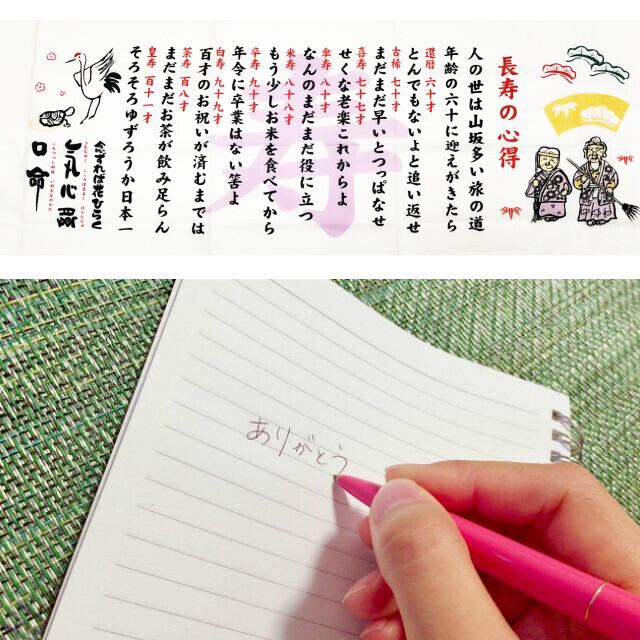 長寿の心得
人の世は山坂多い旅の道
年齢の六十に迎えがきたら
還暦 六十才
とんでもないよと追い返せ
古稀 七十才
まだまだ早いとつっぱなせ
喜寿 七十七才
せくな老楽これからよ
傘寿 八十才
なんのまだまだ役に立つ
米寿 八十八才
もう少しお米を食べてから
卒寿 九十才
年令に卒業はない筈よ
白寿 九十九才
百才のお祝いが済むまでは
茶寿 百八才
まだまだお茶が飲み足らん
皇寿 百十一才
そろそろゆずろうか日本一
寿
念ずれば花ひらく
口 命
ありがとう